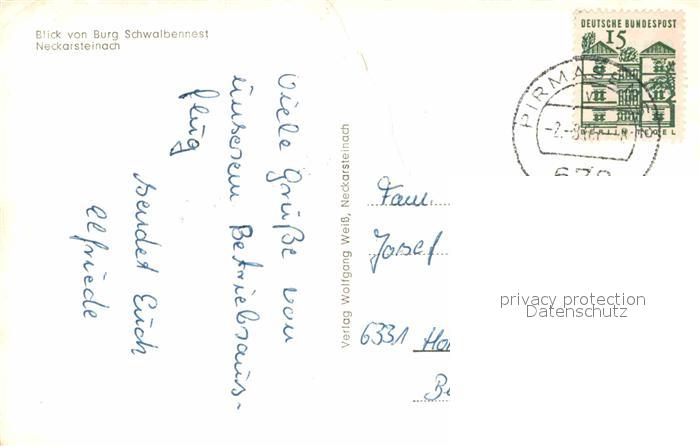 Blick von Burg Schwalbennest
Neckarsteinach
Viele Grüße von
unserem Betriebsaus-
flug
sendet Euch
Elfriede
Verlag Wolfgang Weiß, Neckarsteinach
DEUTSCHE BUNDESPOST
15
BERLIN-TEGEL
PIRMAS
Fam.
Josef
6331
privacy protection
Datenschutz